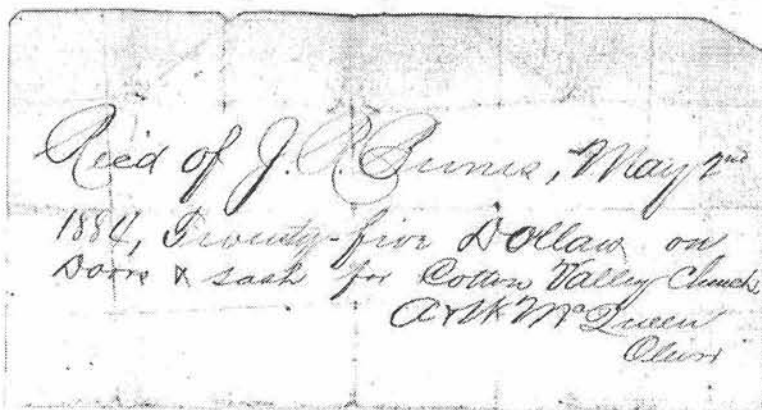 Rec'd of J. R. Burns, May 2nd
1884, Twenty-five Dollars on
Doors & Sash for Cotton Valley Church
McQueen